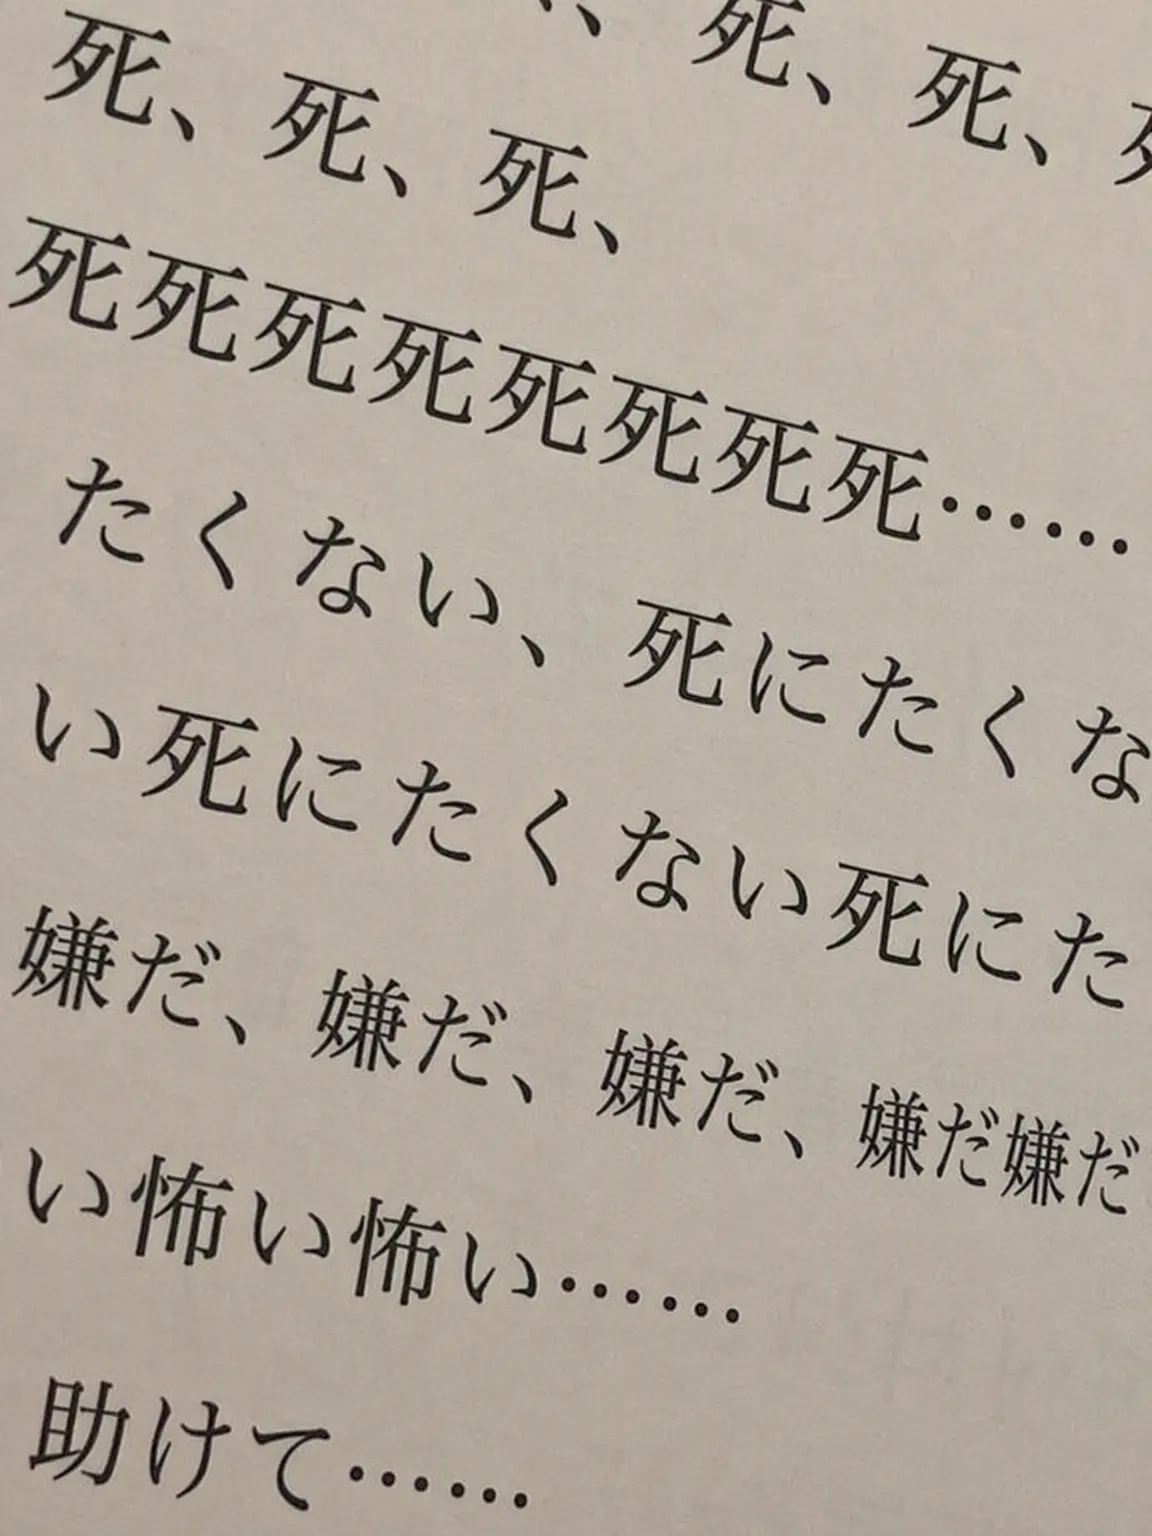 、死、死、
死、死、死、
死死死死死死死死……
たくない、死にたくな
い死にたくない死にた
嫌だ、嫌だ、嫌だ、嫌だ嫌だ
い怖い怖い……
助けて……